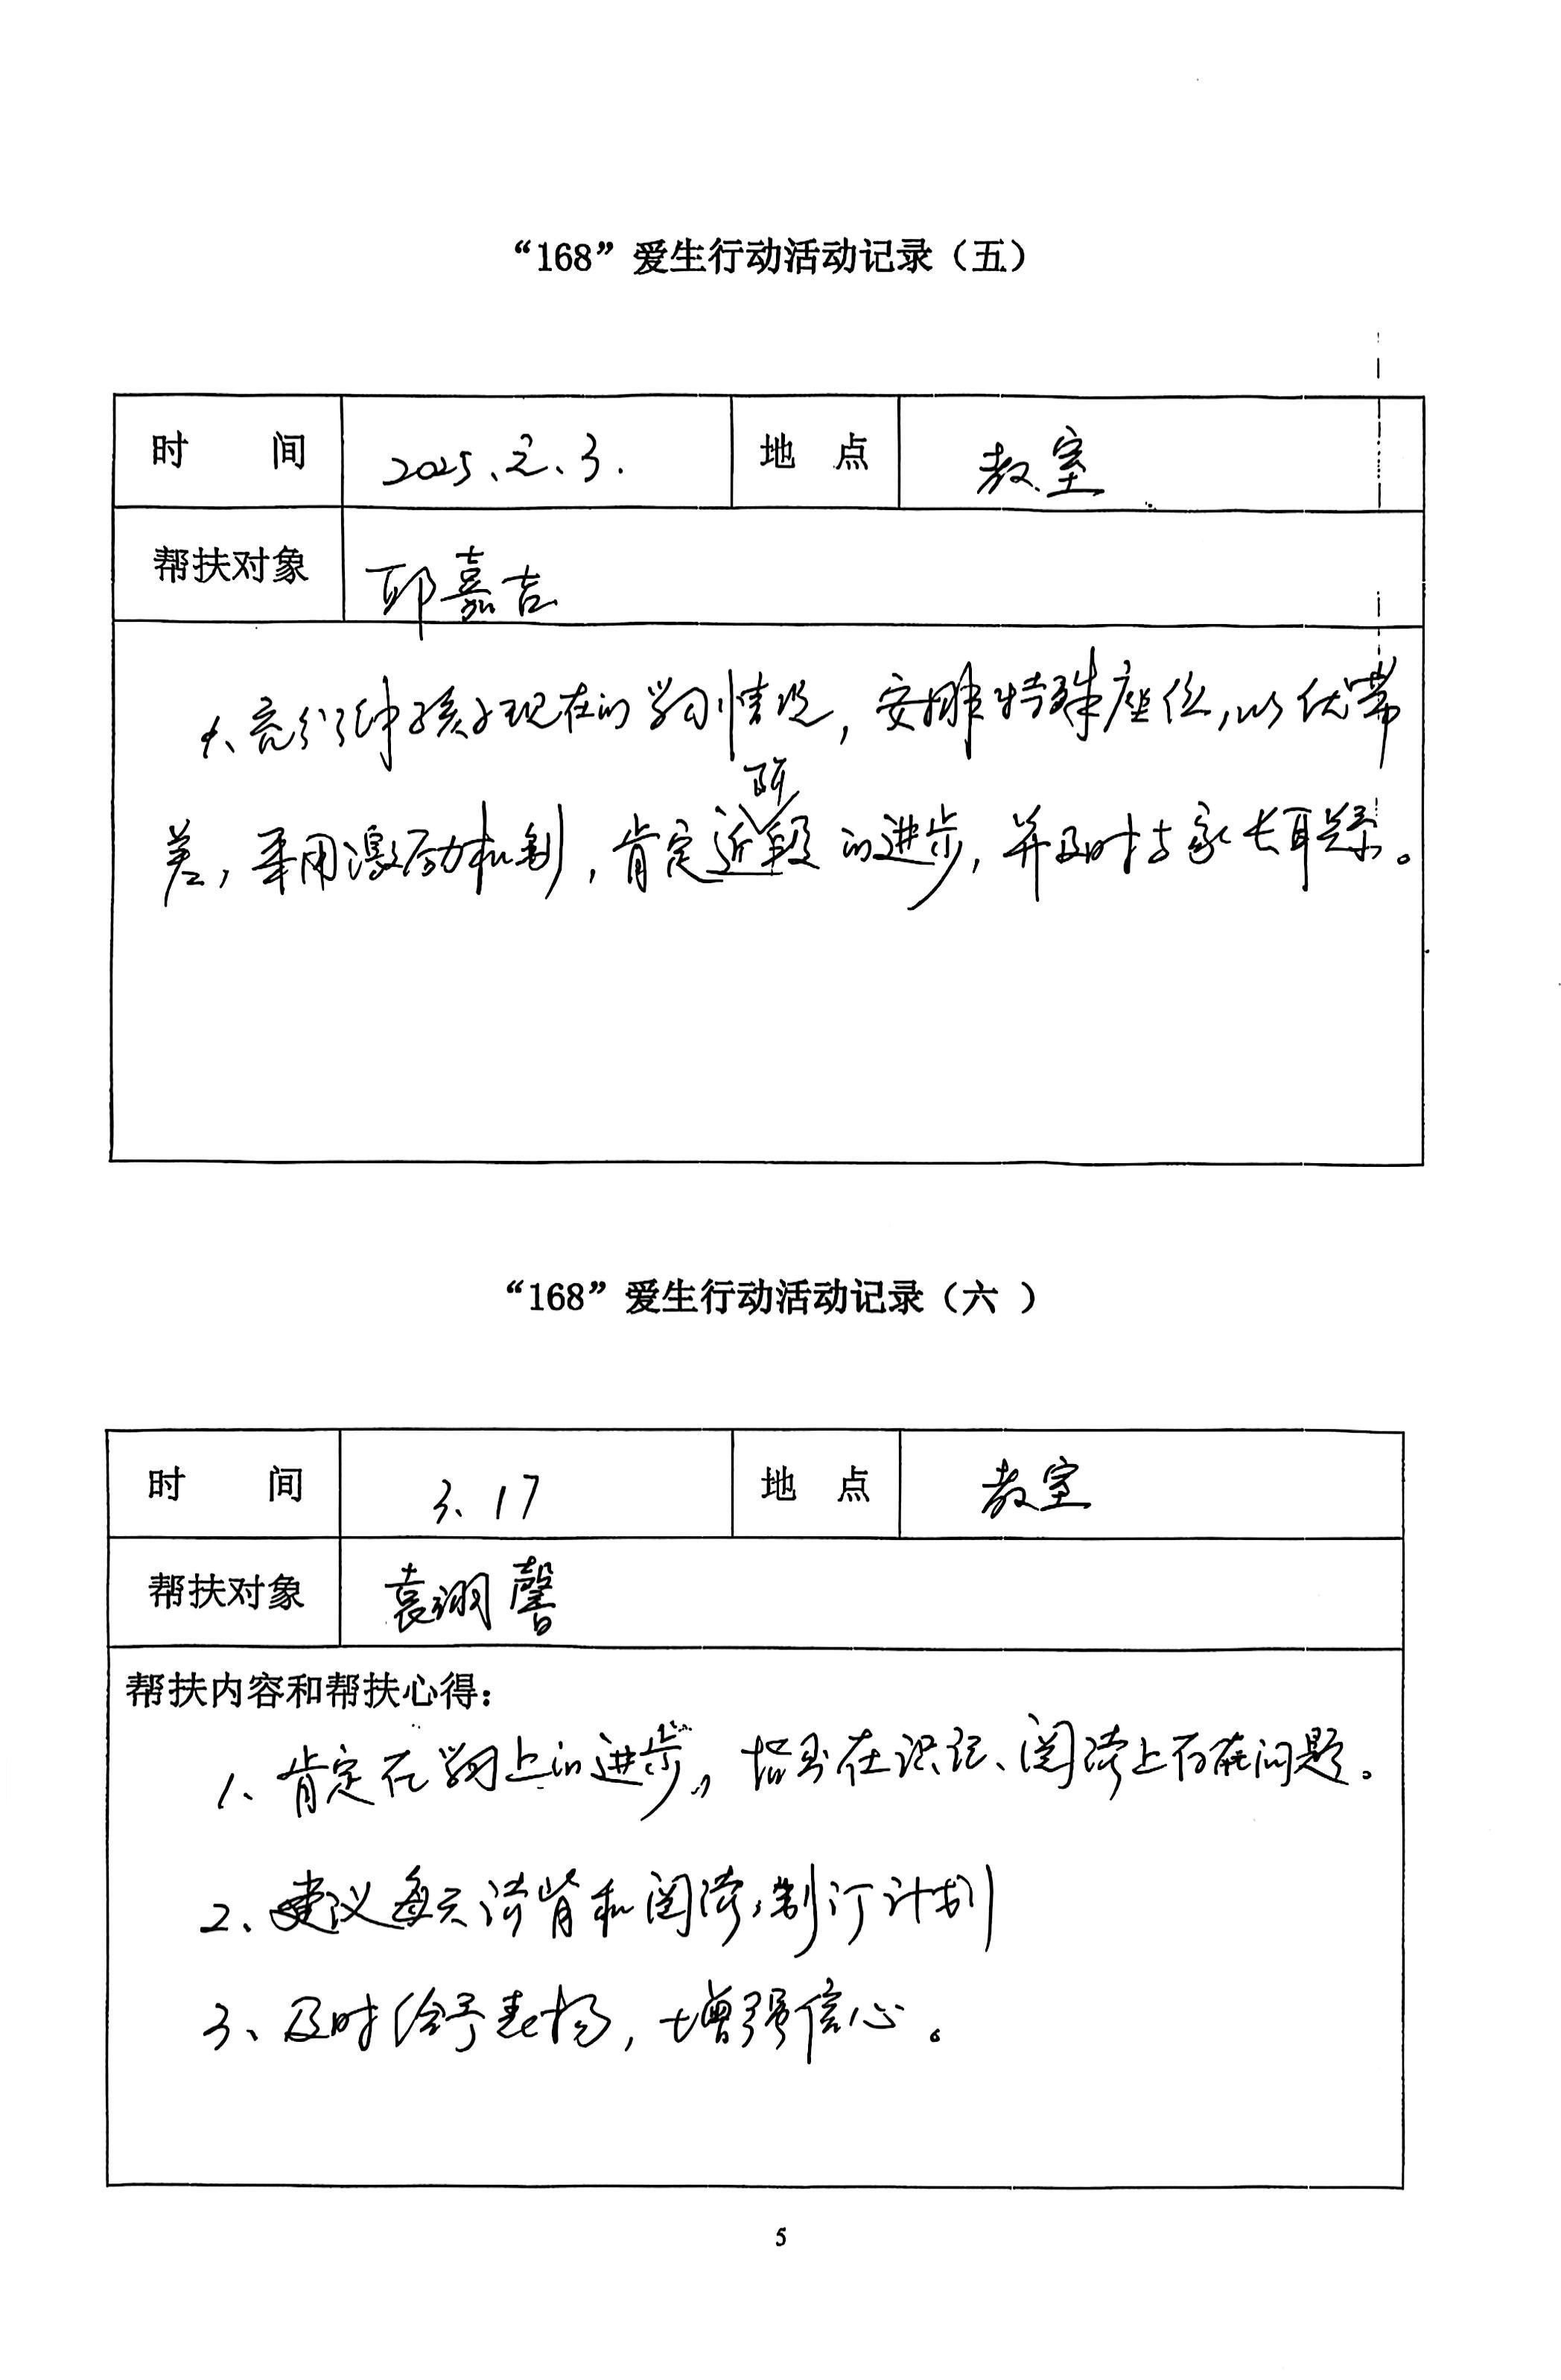 “168”爱生行动活动记录（五）
时 间 2025、2、3. 地 点 教室
帮扶对象 邱嘉吉
1、充分了解孩子现在的学习情况，安排特殊座位，以优带
差，采用激励机制，肯定近阶段的进步，并及时与家长联系。
“168”爱生行动活动记录（六 ）
时 间 3、17 地 点 教室
帮扶对象 袁翊馨
帮扶内容和帮扶心得：
1、肯定在学习上的进步，指出在识记、阅读上存在问题。
2、建议每天读背和阅读，制订计划
3、及时给予表扬，增强信心。
5